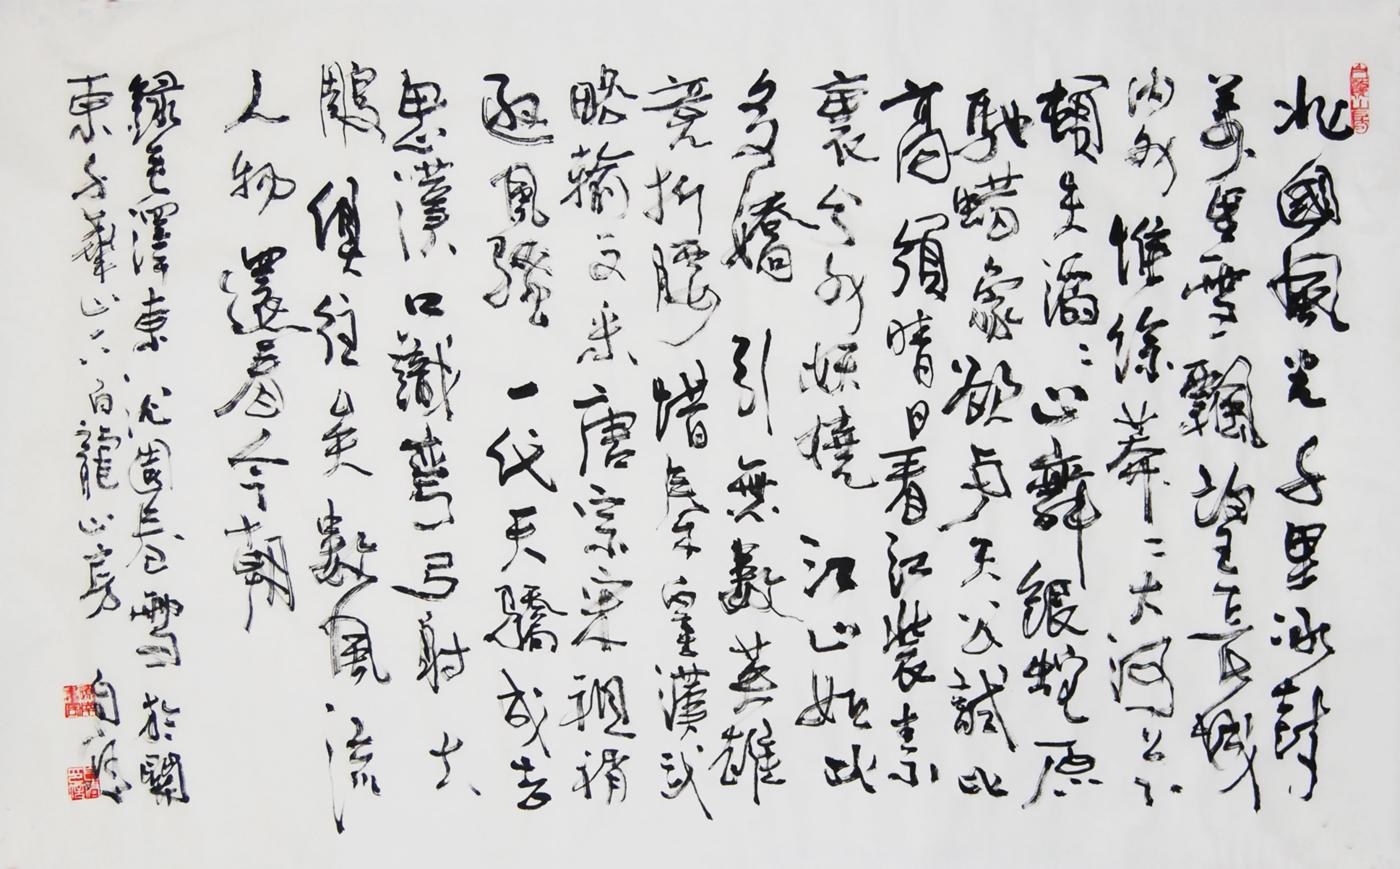 北國風光千里冰封
萬里雪飄望長城
內外惟餘莽〻大河上下
頓失滔〻山舞銀蛇原
馳蠟象欲與天公試比
高須晴日看紅裝素
裹分外妖嬈江山如此
多嬌引無數英雄
競折腰惜秦皇漢武
略輸文采唐宗宋祖稍
遜風騷一代天驕成吉
思漢只識彎弓射大
鵰俱往矣數風流
人物還看今朝
錄毛澤東沁園春雪於關
東千華山下白龍山房